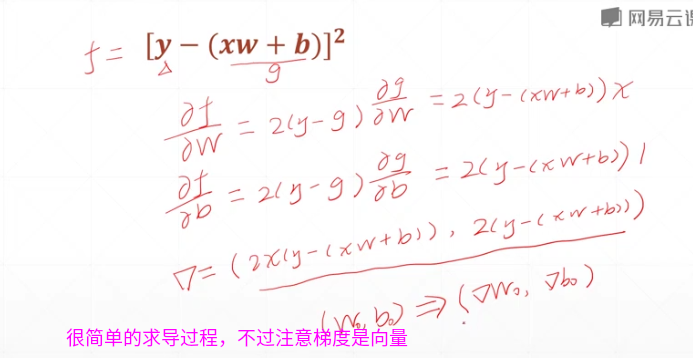 网易云课
f = [y − (xw + b)]²
g
∂f/∂w = 2(y-g) ∂g/∂w = 2(y-(xw+b)) x
∂f/∂b = 2(y-g) ∂g/∂b = 2(y-(xw+b)) 1
∇ = (2x(y-(xw+b)), 2(y-(xw+b)))
(w₀, b₀) ⇒ (∇w₀, ∇b₀)
很简单的求导过程，不过注意梯度是向量